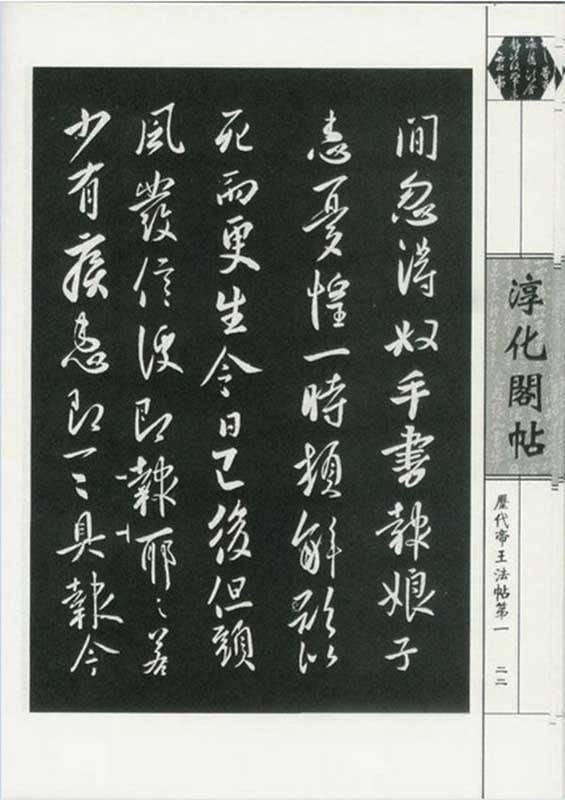 淳化閣帖
歷代帝王法帖第一 二二
間忽得奴手書報娘子
患憂惶一時頓解欲似
死而更生今日已後但頭
風發信便即報耶〻若
少有疾患即一〻具報今